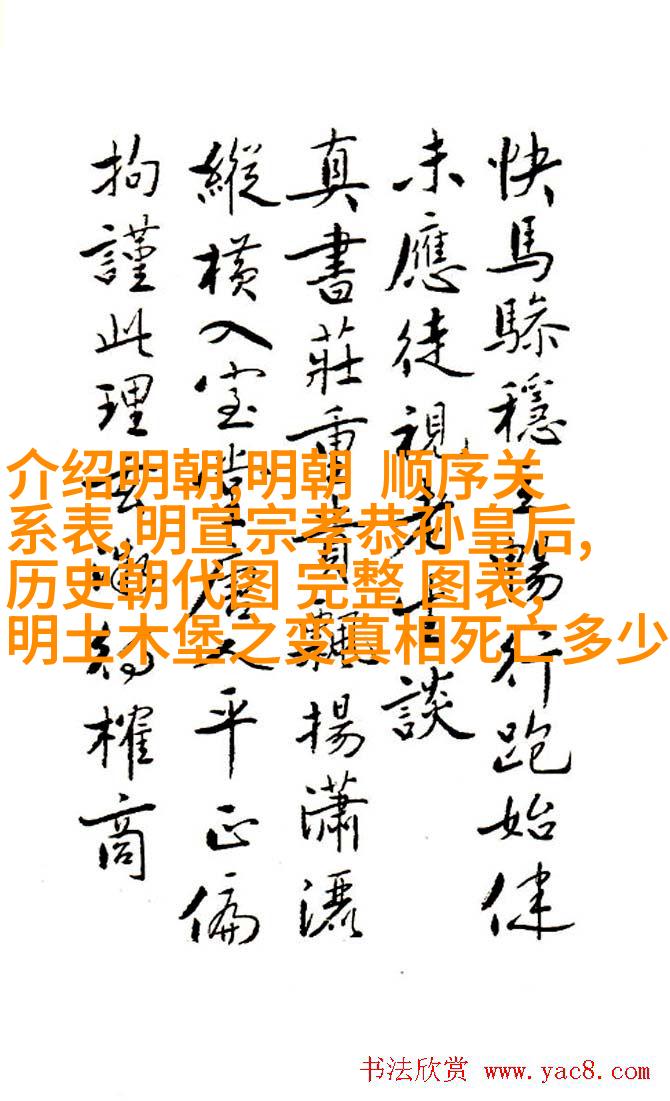 快馬穩行跑始健
未應徒視老談
真書莊重貴飄揚瀟灑
縱橫入室平正偏
拘謹此理榷商
介绍明朝,明朝 顺序关
系表,明宣宗孝恭孙皇后,
历史朝代图 完整 图表,
明土木堡之变真相死亡多少
书法欣赏 www.yac8.com